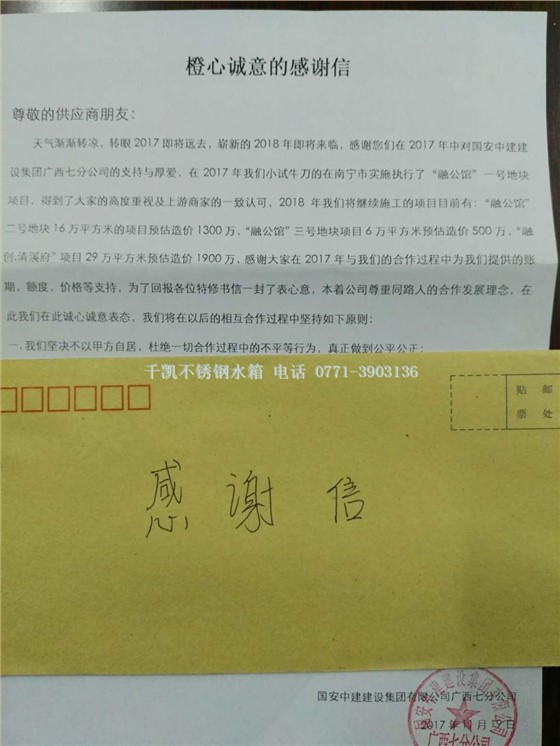 橙心诚意的感谢信
尊敬的供应商朋友：
天气渐渐转凉，转眼2017即将远去，崭新的2018年即将来临，感谢您们在2017年中对国安中建建
设集团广西七分公司的支持与厚爱，在2017年我们小试牛刀的在南宁市实施执行了“融公馆”一号地块
项目，得到了大家的高度重视及上游商家的一致认可，2018年我们将继续施工的项目目前有：“融公馆”
二号地块16万平方米的项目预估造价1300万，“融公馆”三号地块项目6万平方米预估造价500万，“融
创.清溪府”项目29万平方米预估造价1900万，感谢大家在2017年与我们的合作过程中为我们提供的账
期，额度，价格等支持，为了回报各位特修书信一封了表心意，本着公司尊重同路人的合作发展理念，在
此我们在此诚心诚意表态，我们将在以后的相互合作过程中坚持如下原则：
一.我们坚决不以甲方自居，杜绝一切合作过程中的不平等行为，真正做到公平公正；
千凯不锈钢水箱 电话 0771-3903136
贴 邮
票 处
感谢信
国安中建建设集团有限公司广西七分公司
2017年11月17日
国安中建建设集团有限公司
广西七分公司